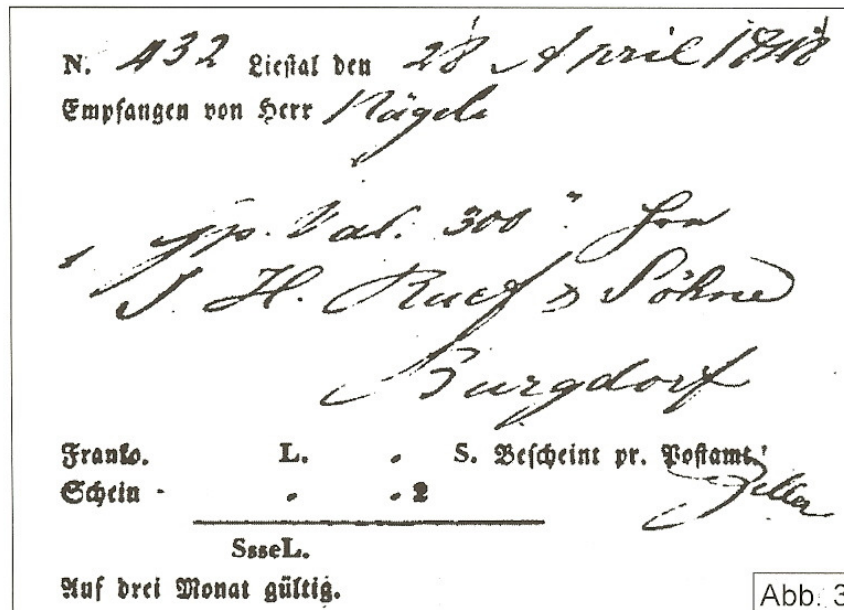 N. 432 Liestal den 28 April 1848
Empfangen von Herr Nägeli
Val. 300 " Hrn
J. H. Ruef & Söhne
Burgdorf
Franko. L. . S. Bescheint pr. Postamt.
Schein - . . 2 Zeller
SsseL.
Auf drei Monat gültig.
Abb. 3